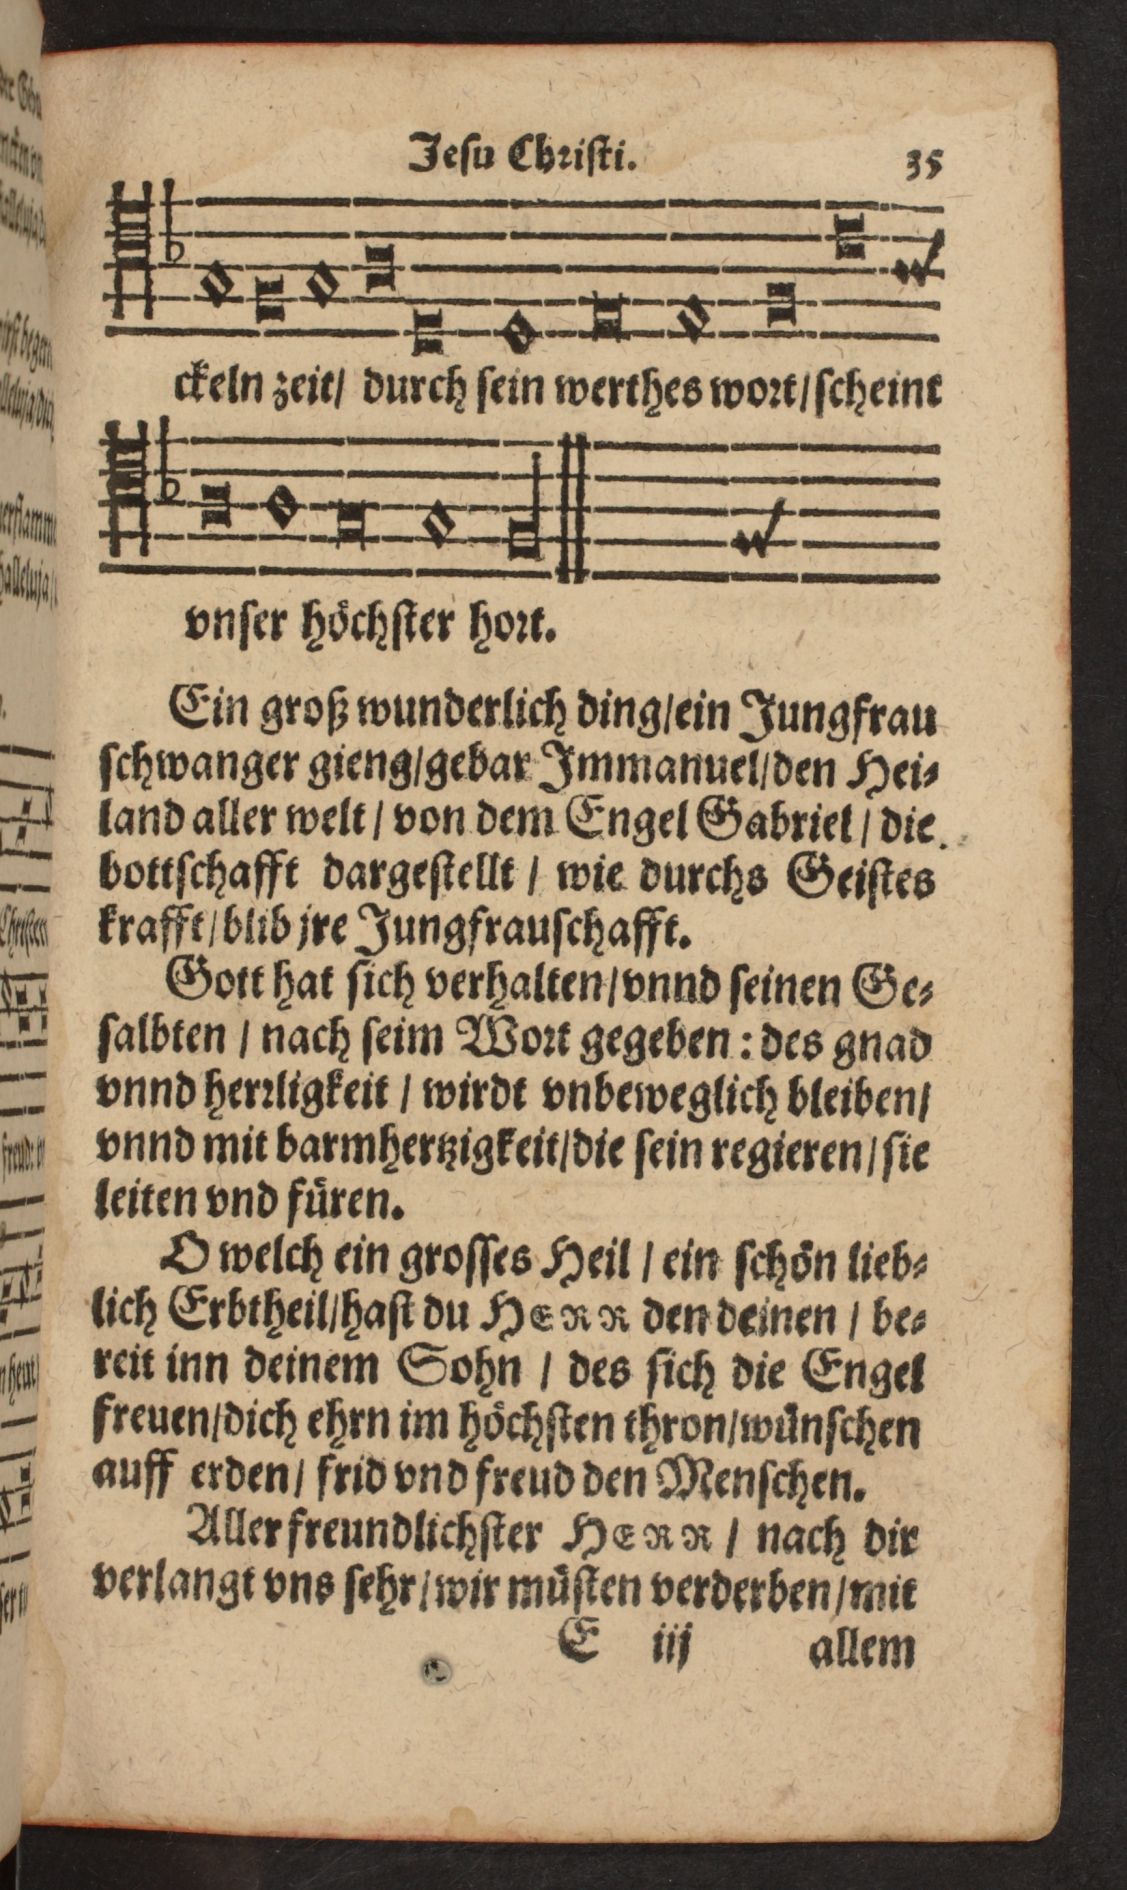 Jesu Christi. 35
ckeln zeit/ durch sein werthes wort/ scheint
vnser höchster hort.
Ein groß wunderlich ding/ ein Jungfrau
schwanger gieng/ gebar Immanuel/ den Hei-
land aller welt/ von dem Engel Gabriel/ die
bottschafft dargestellt/ wie durchs Geistes
krafft/ blib jre Jungfrauschafft.
Gott hat sich verhalten/ vnnd seinen Ge-
salbten/ nach seim Wort gegeben: des gnad
vnnd herrligkeit/ wirdt vnbeweglich bleiben/
vnnd mit barmhertzigkeit/ die sein regieren/ sie
leiten vnd füren.
O welch ein grosses Heil/ ein schön lieb-
lich Erbtheil/ hast du HERR den deinen/ be-
reit inn deinem Sohn/ des sich die Engel
freuen/ dich ehrn im höchsten thron/ wünschen
auff erden/ frid vnd freud den Menschen.
Aller freundlichster HERR/ nach dir
verlangt vns sehr/ wir müsten verderben/ mit
E iij allem